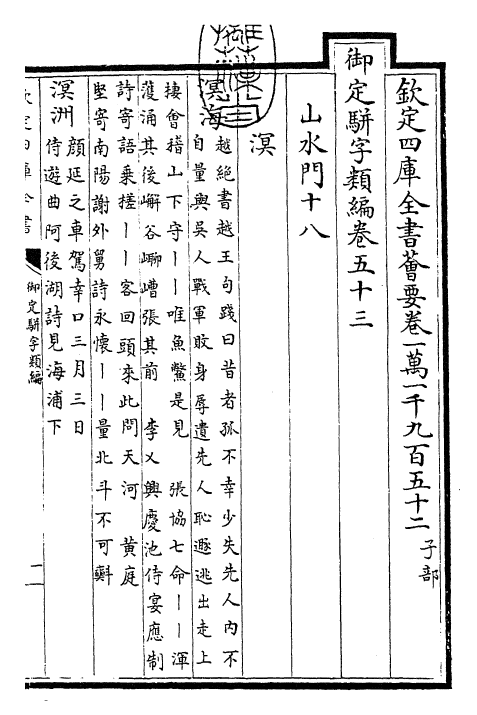 欽定四庫全書薈要卷一萬一千九百五十二 子部
御定駢字類編卷五十三
山水門十八
溟
溟海 越絶書越王句踐曰昔者孤不幸少失先人内不
自量與吳人戰軍敗身辱遺先人恥遯逃出走上
棲會稽山下守丨丨唯魚鱉是見 張協七命丨丨渾
濩涌其後嶰谷嶆張其前 李乂興慶池侍宴應制
詩寄語乗槎丨丨客回頭來此問天河 黄庭
堅寄南陽謝外舅詩永懷丨丨量北斗不可㪺
溟洲 顔延之車駕幸口三月三日
侍遊曲阿後湖詩見海浦下
欽定四庫全書
御定駢字類編
二